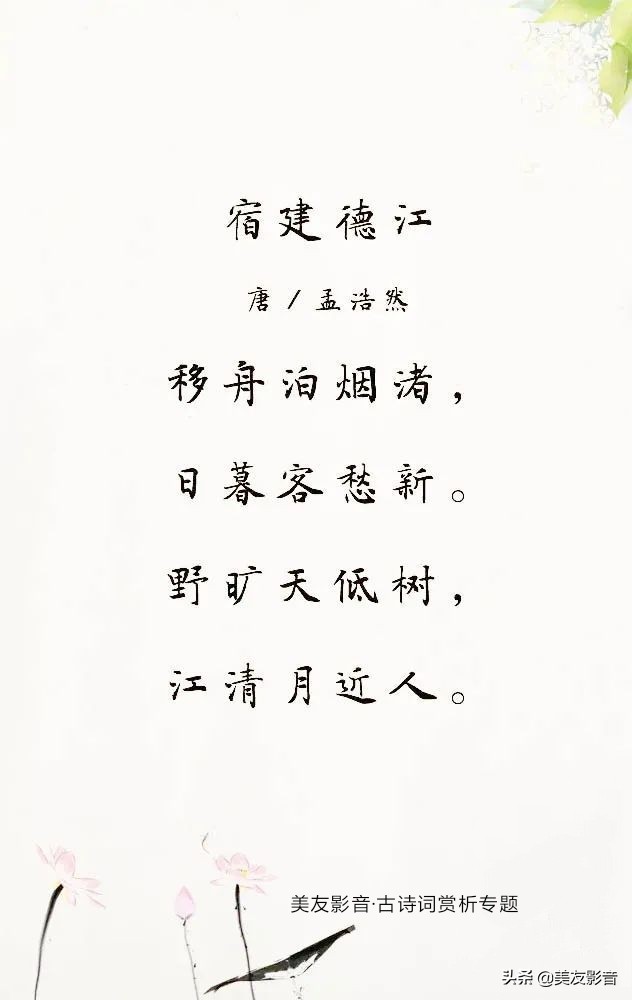 宿建德江
唐／孟浩然
移舟泊烟渚，
日暮客愁新。
野旷天低树，
江清月近人。
美友影音·古诗词赏析专题
头条 @美友影音